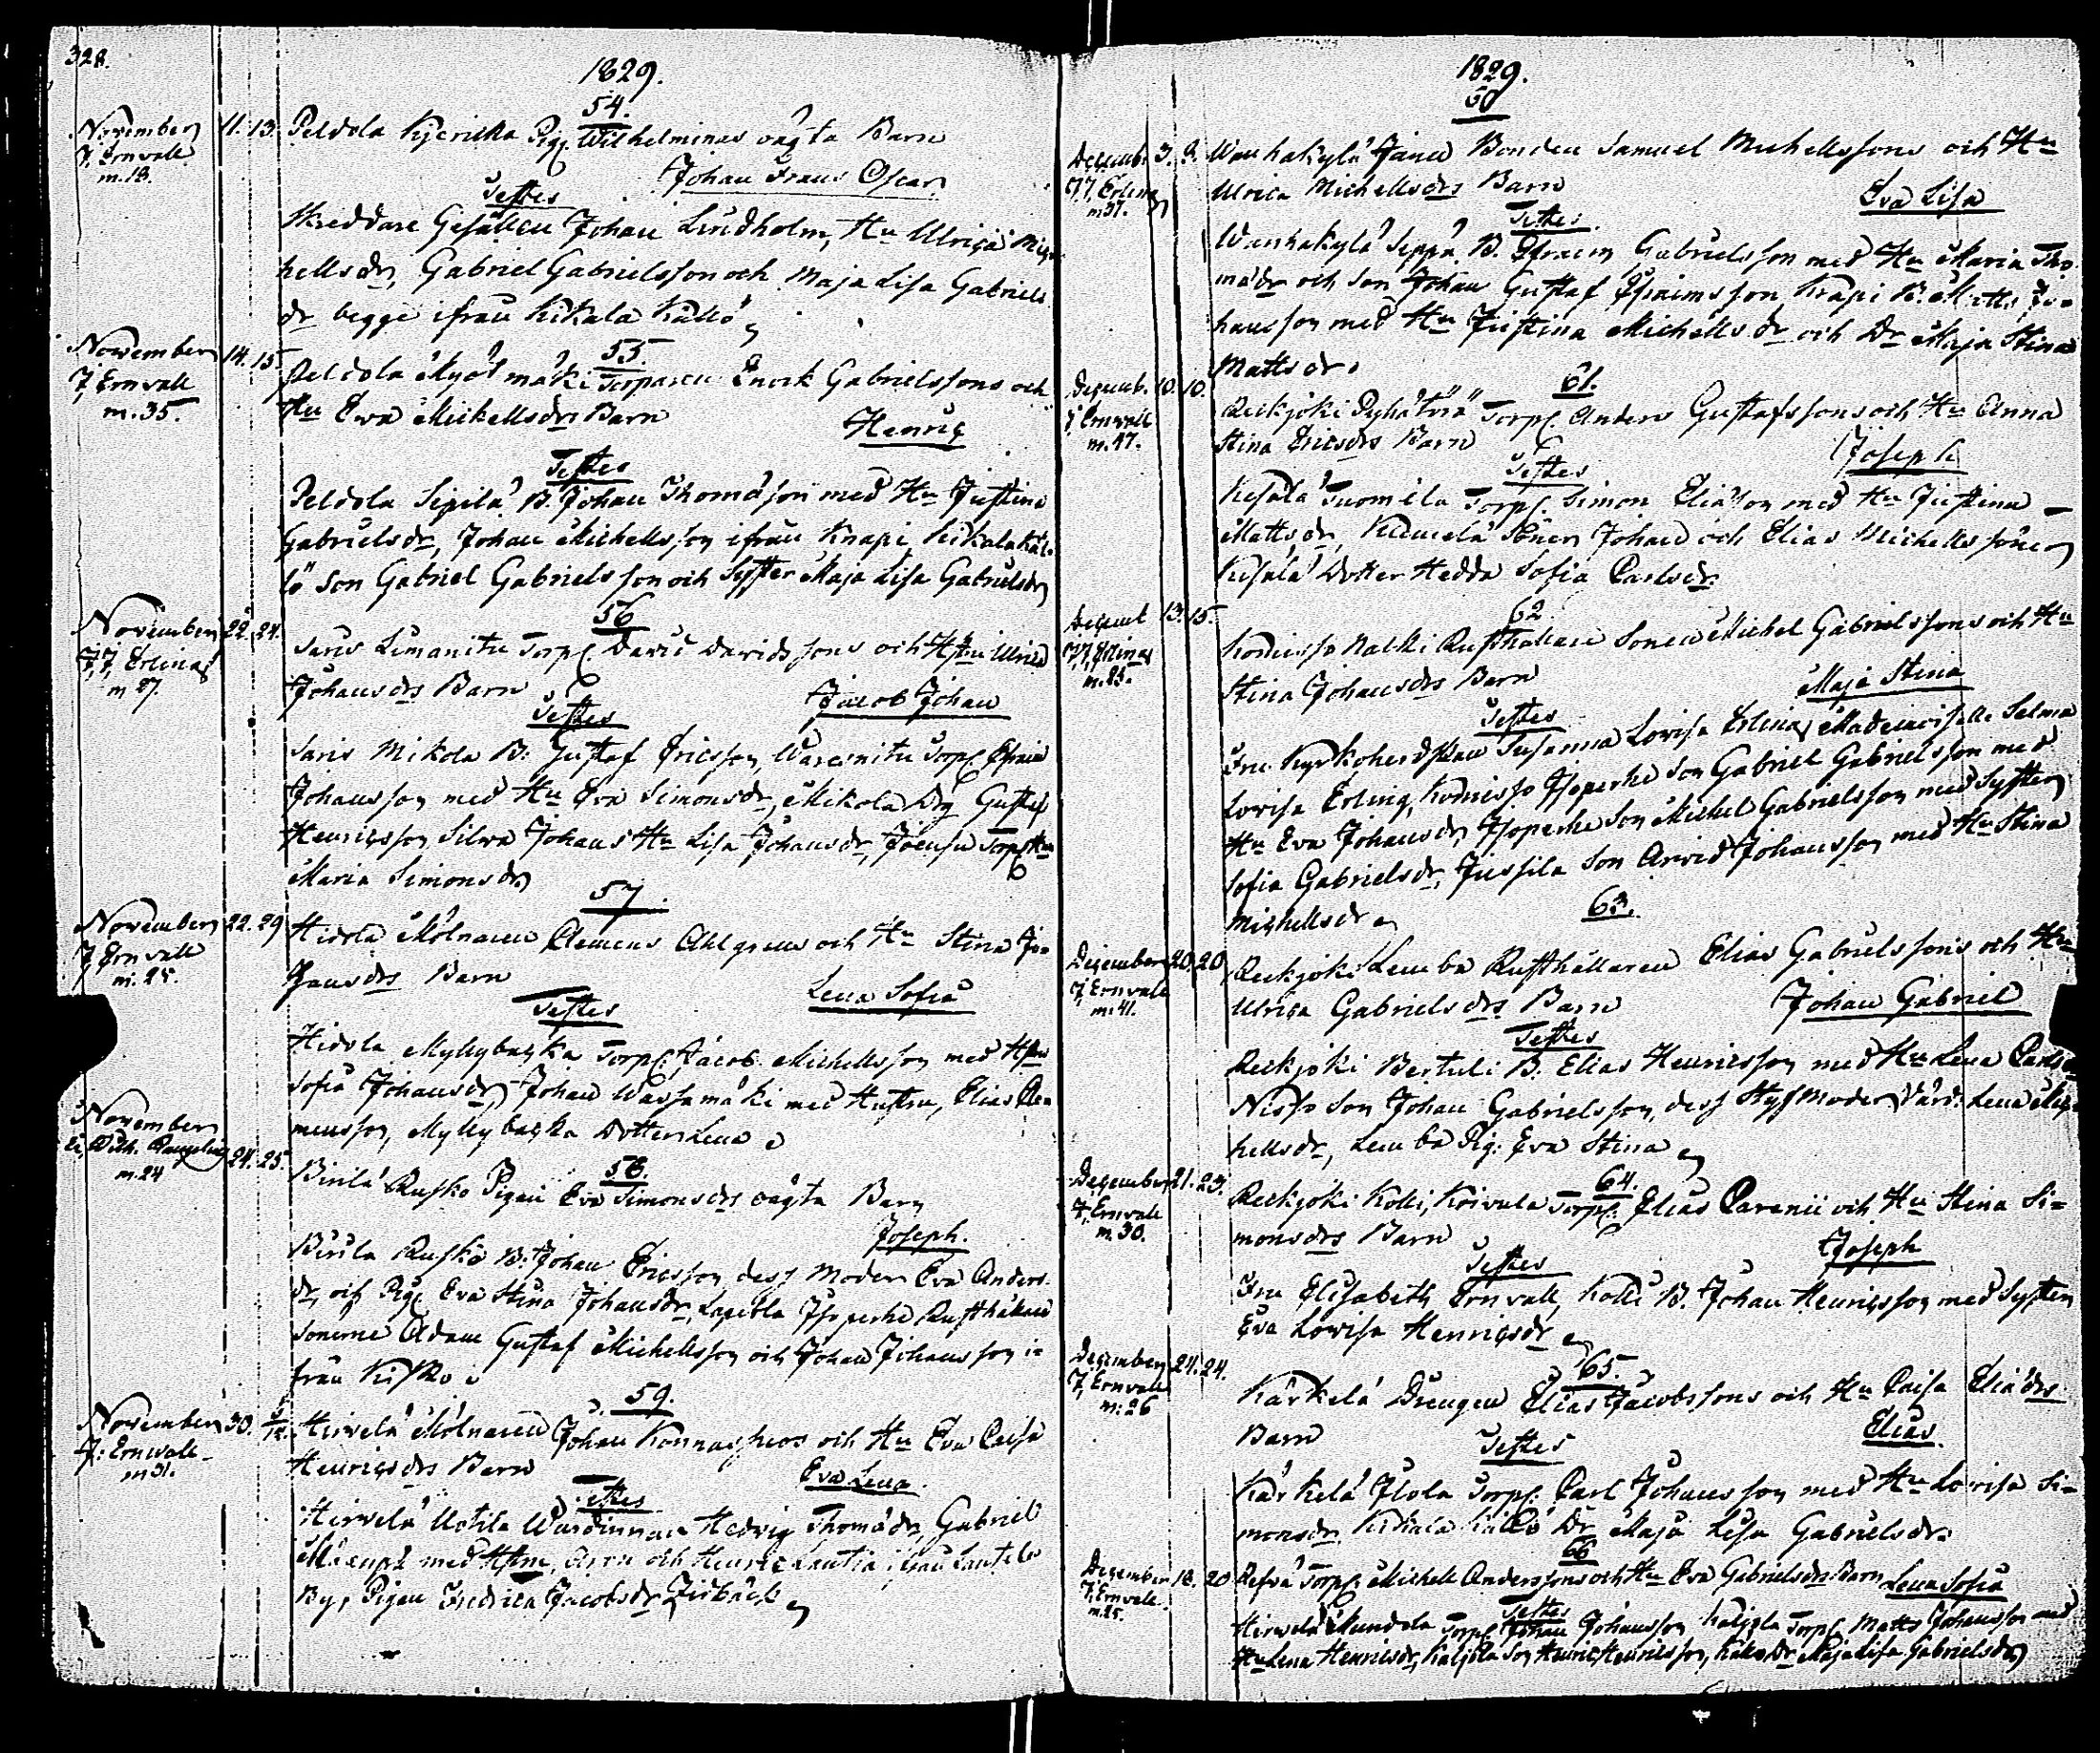 328.
1829.
54.
November 11. 13. Peldola Kjerikka Pig. Wilhelminas oägta Barn
J. Ernvall
m. 18.
Johan Frans Oscar
Testes
Skreddare Gesällen Johan Lindholm, Hu Ulrica Mic
hellsdr, Gabriel Gabrielsson och Maja Lisa Gabriels
dr begge ifrån Kikala Källö
55.
November 14. 15. Peldola Myös mäki Torparen Enock Gabrielssons och
J. Ernvall
m. 35.
Hu Eva Mickellsdrs Barn
Henric
Testes
Peldola Sipilä B. Johan Thomasson med Hu Justina
Gabrielsdr, Johan Michellsson ifrån Knapi Kikala Käl
lö Son Gabriel Gabrielsson och Syster Maja Lisa Gabrielsdr
56
November 22. 24. Saris Limanitu Torp. David Davidssons och Hustru Ulrica
J. J. Erling
m 27.
Johansdrs Barn
Jacob Johan
Testes
Saris Mikola B: Gustaf Ericsson, Torp. Efraim
Johansson med Hu Eva Simonsdr, Mikola Dg Gustaf
Henricsson Silwa Johans Hu Lisa Johansdr, Torp. Hu
Maria Simonsdr
57.
November 22. 29 Hidola Mölnaren Clemens Ahlgrens och Hu Stina Jo=
J Ernvall
m. 25.
hansdrs Barn
Lena Sofia
Testes
Hidola Myllybacka Torp. Jacob Michellsson med Hu
Sofia Johansdr Johan Wassamäki med Hustru, Elias Cle
mensson, Myllybacka Dotter Lena
58.
November 24. 25. Pirilä Rusko Pigan Eva Simonsdrs oägta Barn
m. 24
Joseph.
Pirilä Rusko B: Johan Ericsson dess Moder Eva Anders
dr, och Pig. Eva Stina Johansdr, Isoperhe Rusthållare
sönerne Adam Gustaf Michellsson och Johan Johansson i=
från Kisko
59.
November 30. Hirvelä Mölnaren Johan och Hu Eva Caisa
J: Ernvall
m 31.
Henricsdrs Barn
Eva Lena
Testes
Hirvelä Uotila Wärdinnan Hedvig Thomadr, Gabriel
med Hustru, och Henric Lautia ifrån Lautela
By, Pigan Fredrica Jacobsdr
1829.
60
Decemb. 3. 3. Wanhakylä Jänu Bonden Samuel Michellssons och Hu
J. J. Erling
m 37.
Ulrica Michellsdrs Barn
Eva Lisa
Testes
Wanhakylä Seppä B. Efraim Gabrielsson med Hu Maria Tho
madr och Son Johan Gustaf Efraimsson, Knapi B. Matts Jo=
hansson med Hu Justina Michellsdr och Dr Maja Stina
Mattsdr.
61.
Decemb. 10. 10. Reckjoki Torp. Anders Gustafssons och Hu Anna
J. Ernvall
m. 47.
Stina Ericsdrs Barn
Joseph
Testes
Kesälä Tuomila Torp. Simon Eliasson med Hu Justina
Mattsdr, Söner Johan och Elias Michellssöner
Kesälä Dotter Hedda Sofia Carlsdr
62
Decemb 13. 15. Komisso Nalki Rusthållare Sonen Michel Gabrielssons och Hu
J. J. Erling
m. 25.
Stina Johansdrs Barn
Maja Stina
Testes
Fru Kyrkoherdskan Susanna Lovisa Erling, Mademoiselle Selma
Lovisa Erling, Komisso Isoperhe Son Gabriel Gabrielsson med
Hu Eva Johansdr, Isoperhe Son Michel Gabrielsson med Syster
Sofia Gabrielsdr, Jussila Son Arvid Johansson med Hu Stina
Michellsdr
63.
December 20. 20. Reckjoki Lemba Rusthållaren Elias Gabrielssons och Hu
J, Ernvall
m: 41.
Ulrica Gabrielsdrs Barn
Johan Gabriel
Testes
Reckjoki Bertuli B. Elias Henricsson med Hu Lena Carlsd
Nisso Son Johan Gabrielsson, dess Styfmoder Värd: Lena Mic
hellsdr, Lemba Pig: Eva Stina
64.
December 21. 23. Reckjoki Kolli, Koivula Torp. Elias Carenii och Hu Stina Si=
J, Ernvall
m. 30.
monsdrs Barn
Joseph
Testes
Fru Elisabeth Ernvall, Kolli B. Johan Henricsson med Syster
Eva Lovisa Henricsdr
65.
December 24. 24. Kärkelä Drengen Elias Jacobssons och Hu Caisa Eliadrs
J, Ernvall
m: 26
Barn
Elias.
Testes
Kärkelä Ilola Torp. Carl Johansson med Hu Lovisa Si=
monsdr Kikala Källö Dr Maja Lisa Gabrielsdr.
66
December 18. 20 Torp. Michell Anderssons och Hu Eva Gabrielsdrs Barn Lena Sofia
J. Ernvall
m. 25.
Testes
Hirvelä Torp. Johan Johansson, Torp. Matts Johansson med
Hu Lena Henricsdr, Son Henric Henricsson, Källö Dr Maja Lisa Gabrielsdr